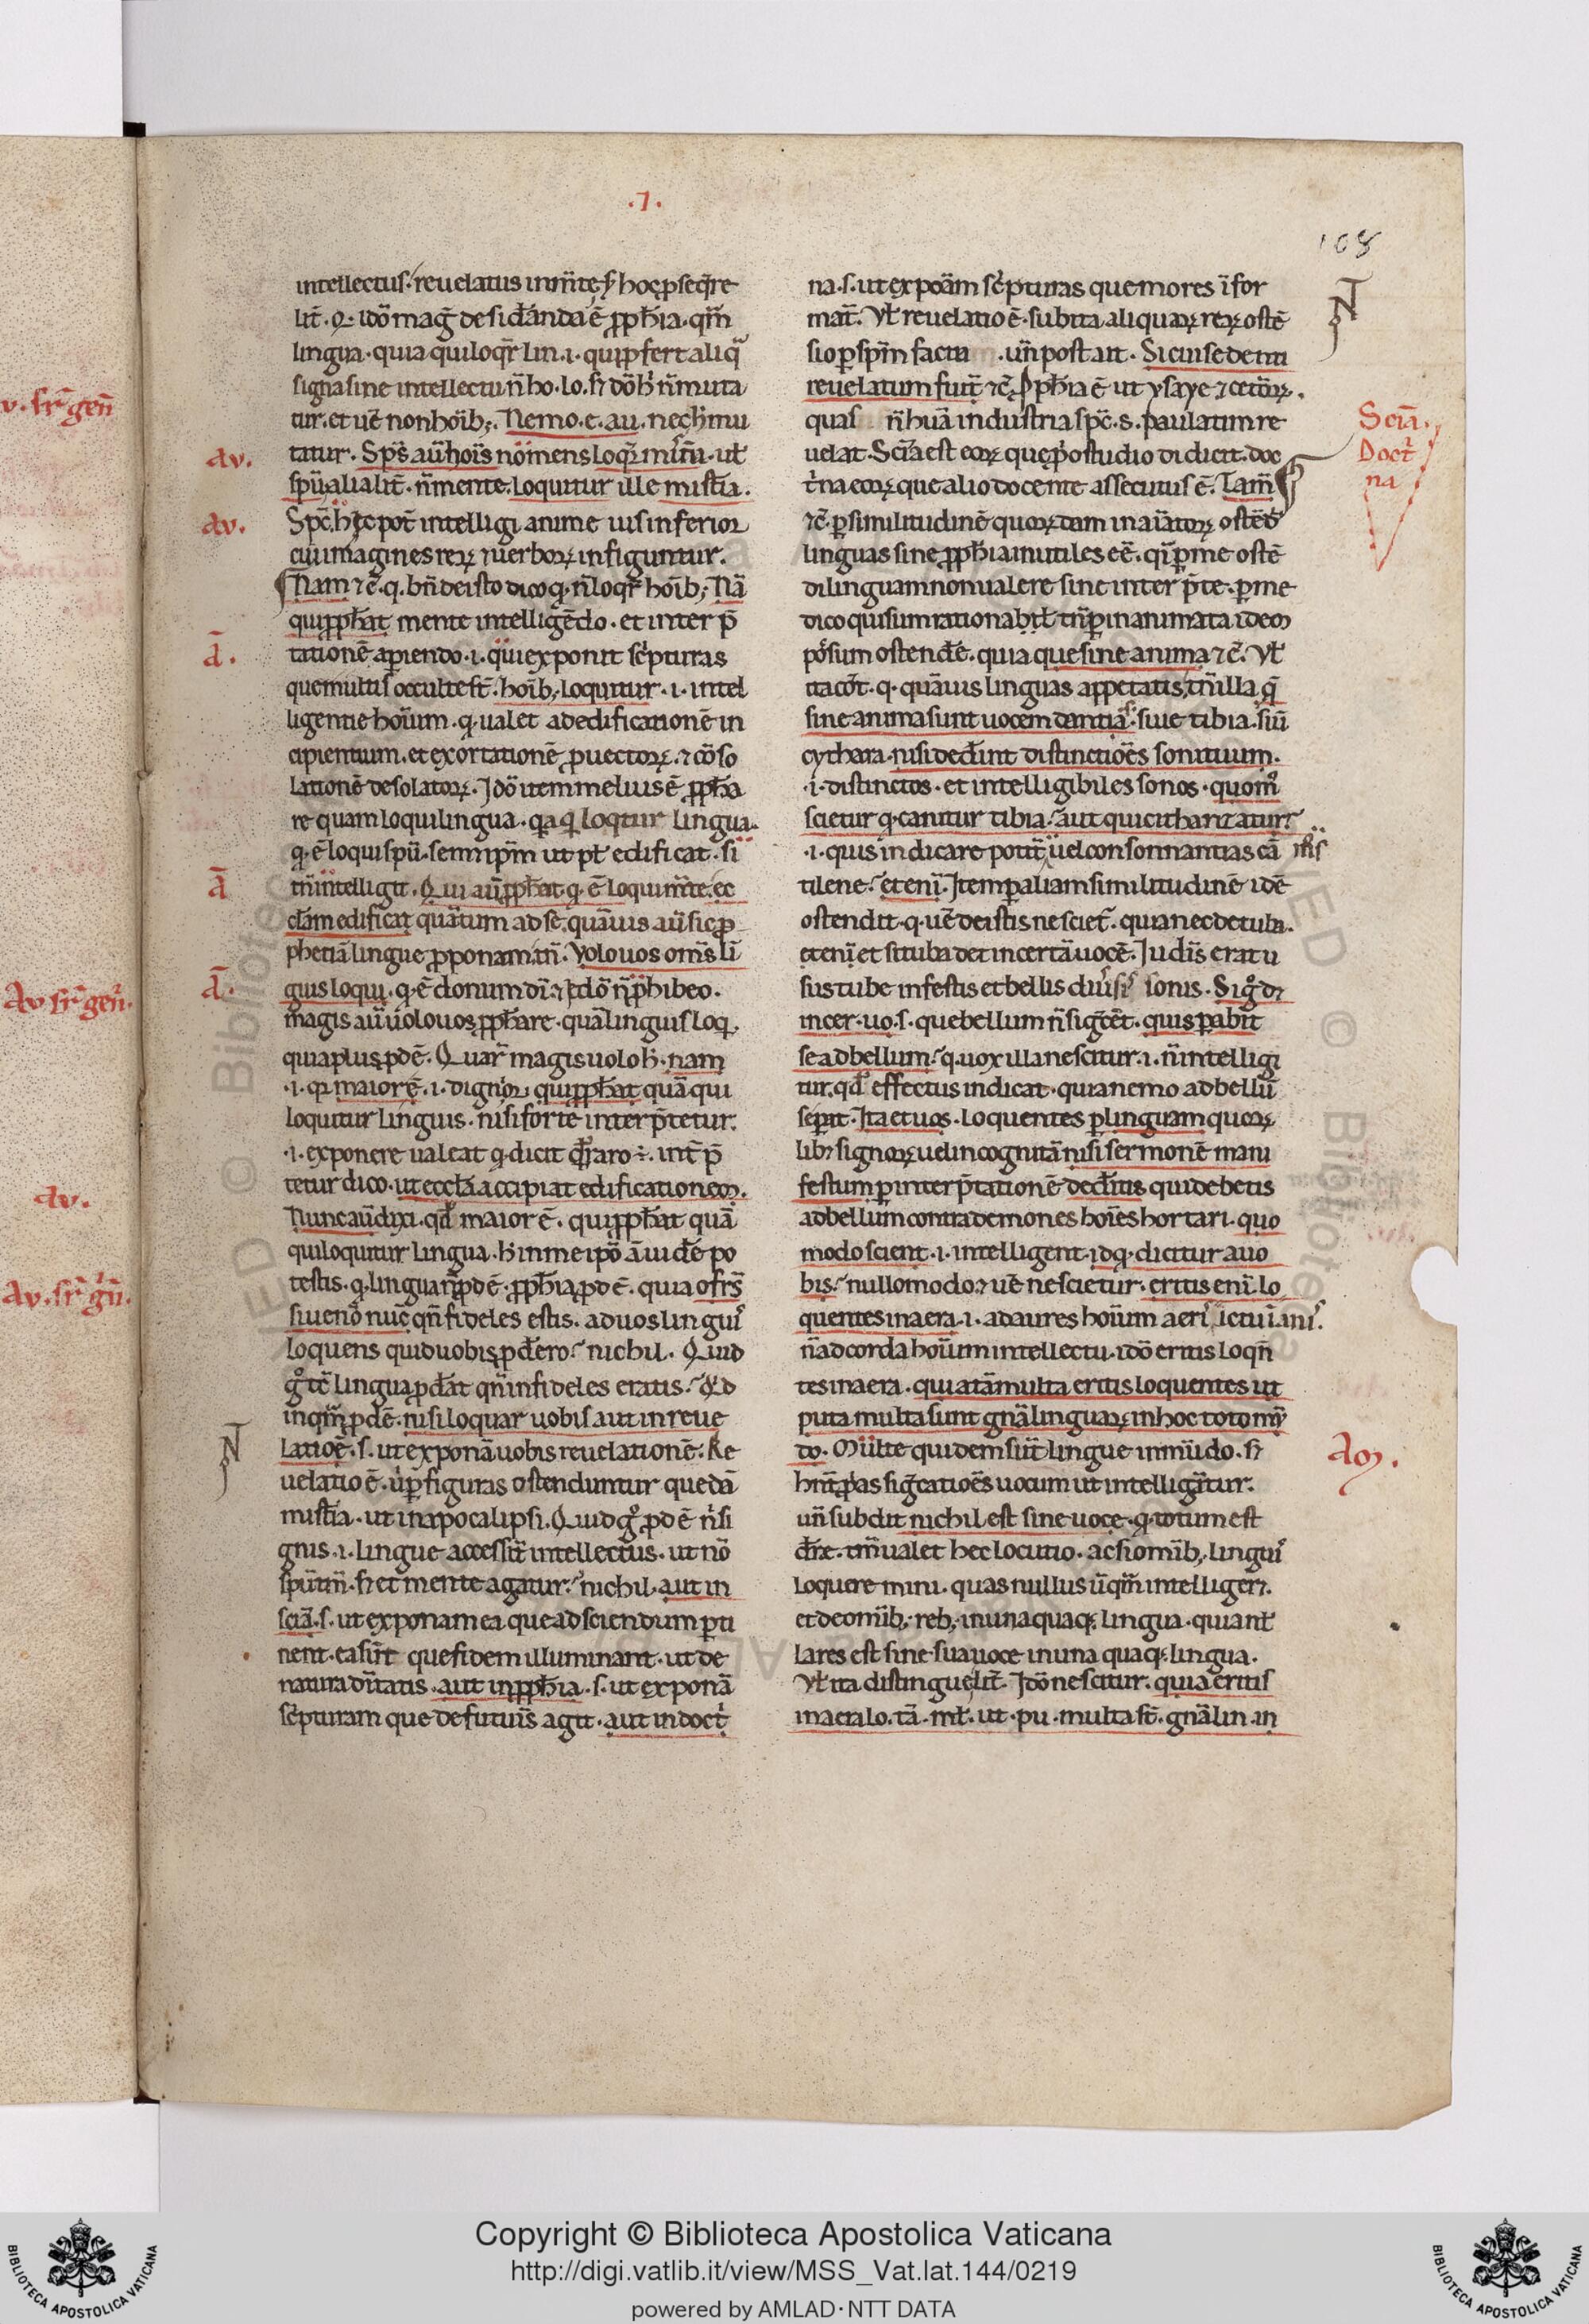 .7.
108
intellectus. reuelatus in m̄te. s; hoc p seq̄re
lit̄. Q. idō maḡ desid̄anda ē ꝓph̄ia. qm̄
lingua. quia qui loqr̄ lin. i. qui ꝓfert aliq̄
signa sine intellectu n̄ ho. lo. sꝫ dō h̄ n̄ muta
tur. et uē non hoib;. Nemo. e. au. nec h̄ mu
av.
tatur. Sps̄ aū hois̄ nō mens loqr̄ mist̄ia. ut
spū alialit̄. n̄ mente. loquitur ille mist̄ia.
av.
Spc̄. hic pot̄ intelligi anime uis inferior
cui imagines reꝝ ⁊ uerboꝝ infiguntur.
Nam ⁊c̄. q. bn̄ de isto dico q. n̄ loqr̄ hoib;. Nā
qui ꝓph̄at mente intelligēdo. et inter p̄
ā.
tationē apiendo. i. qui exponit sc̄pturas
que multis occulte st̄. hoib; loquitur. i. intel
ligentie hoium. q. ualet ad edificationē in
cipientium. et exortationē ꝓuectoꝝ. ⁊ cōso
lationē desolatoꝝ. Idō item melius ē ꝓph̄a
re quam loqui lingua. qa q loqtur lingua.
q. ē loqui spū. semʼ ipm̄ ut pt̄ edificat. si
ā
tn̄ intelligit. Qui aū ꝓph̄at. q. ē loqui m̄te. ec
cl̄am edificat quātum ad se. quāuis aū sic ꝓ
phetiā lingue ꝓponam. tn̄. Volo uos om̄s li
ā.
guis loqui. q. ē donum dī ⁊ idō n̄ ꝓhibeo.
magis aū uolo uos ꝓph̄are. quā linguis loq.
quia plus ꝓdē. Quarʼ magis uolo h̄. nam
.i. qa maior ē. i. dignior qui ꝓph̄at quā qui
loquitur linguis. nisi forte inter p̄tetur.
.i. exponere ualeat q. dicit int̄ p̄
tetur dico. ut eccl̄a accipiat edificationem.
Nunc aū dixi. qd̄ maior ē. qui ꝓph̄at quā
qui loquitur lingua. h̄ in me ipō uidē po
testis. q. lingua n̄ ꝓdē. ꝓph̄ia ꝓdē. quia o frs̄
si uenō nūc qn̄ fideles estis. ad uos linguis
loquens quid uobis ꝓdero. nichil. Quid
gͦ tc̄ lingua ꝓd̄at qn̄ infideles eratis. Qd
inqm̄ ꝓdē. nisi loquar uobis aut in reue
latiōe. s. ut exponā uobis reuelationē. Re
uelatio ē. ubi p figuras ostenduntur quedā
mist̄ia. ut in apocalipsi. Quid gͦ ꝓdē n̄ si
gnis. i. lingue accessit intellectus. ut nō
spū tm̄. sꝫ et mente agatur. nichil. aut in
sciā. s. ut exponam ea que ad sciendum pti
nent. ea sūt que fidem illuminant. ut de
natura diuītatis. aut in ꝓph̄ia. s. ut exponā
sc̄pturam que de futuris agit. aut in doct̄
na. s. ut expoām sc̄pturas que mores ī for
mat̄. Vt̄ reuelatio ē. subita aliquaꝝ reꝝ ostē
sio p spm̄ facta. un̄ post ait. Si cui sedenti
reuelatum fuit̄ ⁊c̄. Ꝓph̄ia ē ut ysaye ⁊ cetōꝝ.
quas n̄ huā industria spc̄. s. paulatim re
Scīa.
Doct̄
na
uelat. Scīa est eoꝝ que ꝓ studio didicit. doc
t̄na eoꝝ que alio docente assecutus ē. Tam̄
⁊c̄. p similitudinē quoꝝdam inaiatoꝝ ostēd̄
linguas sine ꝓph̄ia inutiles eē. q̄ p me ostē
di linguam non ualere sine inter p̄te. p me
dico qui sum rationabil̄ tn̄ p inanimata idem
possum ostend̄e. quia que sine anima ⁊c̄. Vt̄
ita cōt. q. quāuis linguas appetatis, tn̄ illa q̄
sine anima sunt uocem dantia. siue tibia. siū
cythara. nisi ded̄int distinctiōes sonituum.
.i. distinctos. et intelligibiles sonos. quomͦ
scietur q. canitur tibia. aut qui cithariz atur
.i. quis indicare poterit uel consonnantias cā
tilene. et enī. Item p aliam similitudinē idē
ostendit. q. uē de istis nesciet̄. quia nec de tuba.
etenī et si tuba det incertā uocē. Iudīs erat u
sus tube in festis et bellis diuīsis sonis. Si gͦ d̄
incer. uo. s. que bellum n̄ sig̃cēt. quis pabit
se ad bellum. q. uox illa nescitur. i. n̄ intelligi
tur. qd̄ effectus indicat. quia nemo ad bellū
se parat. Ita et uos. loquentes p linguam quoꝝ
libꝫ signoꝝ uel incognitā nisi sermonē mani
festum p inter p̄tationē dedīitis qui debetis
ad bellum contra demones hoīes hortari. quo
modo scient. i. intelligent. id q. dicitur a uo
bis. nullo modo. ⁊ uē nescietur. eritis enī. lo
quentes in aera. i. ad aures hoium aeris ictu
n̄ ad corda hoium intellectu. idō eritis loqn̄
tes in aera. quia tā multa eritis loquentes ut
puta multa sunt gnā linguaꝝ in hoc toto mū
Aoɜ.
do. Multe quidem sūt lingue in mūdo. sꝫ
hn̄t ꝓpas sig̃catiōes uocum ut intelligātur.
un̄ subdit nichil est sine uoce. q. totum est
dic̄re. tn̄ ualet hec locutio. ac si omib; linguis
loquere mini. quas nullus ūqm̄ intelligerꝫ.
et de omib; reb; in una quaq; lingua. qui ant̄
lares est sine sua uoce in una quaq; lingua.
Vt̄ ita distingue lit̄. Idō nescitur. quia eritis
in aera lo. tā. ml̄. ut. pu. multa st̄. gnā lin. in
Copyright © Biblioteca Apostolica Vaticana
http://digi.vatlib.it/view/MSS_Vat.lat.144/0219
powered by AMLAD·NTT DATA
BIBLIOTECA APOSTOLICA VATICANA
BIBLIOTECA APOSTOLICA VATICANA